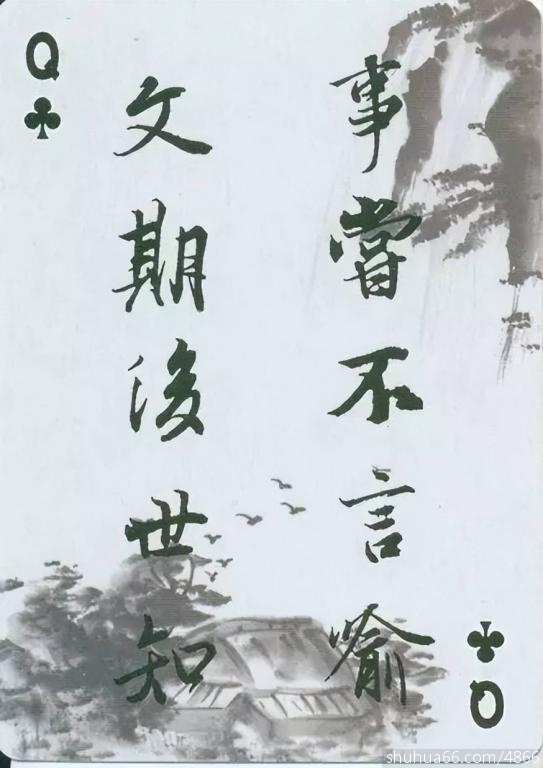 Q
事嘗不言喻
文期後世知
Q
shuhua66.com/4866